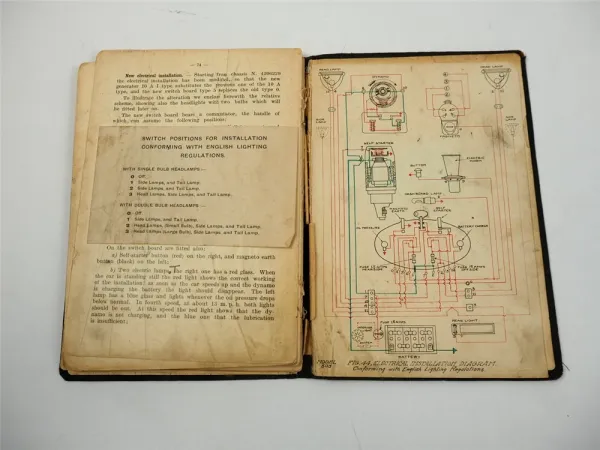 — 74 —
New electrical installation. — Starting from chassis N.
the electrical installation has been modified, so that the new
generator 20 A I type substitutes the previous one of the 10 A
type, and the new switch board type 5 replaces the old type 6.
To illustrate the alteration we enclose herewith the relative
scheme, showing also the headlights with two bulbs which will
be fitted later on.
The new switch board bears a commutator, the handle of
which can assume the following positions:
SWITCH POSITIONS FOR INSTALLATION
CONFORMING WITH ENGLISH LIGHTING
REGULATIONS.
WITH SINGLE BULB HEADLAMPS:—
0 Off.
1 Side Lamps, and Tail Lamp.
2 Side Lamps, and Tail Lamp.
3 Head Lamps, Side Lamps, and Tail Lamp.
WITH DOUBLE BULB HEADLAMPS:—
0 Off.
1 Side Lamps, and Tail Lamp.
2 Head Lamps, (Small Bulb), Side Lamps, and Tail Lamp.
3 Head Lamps (Large Bulb), Side Lamps, and Tail Lamp.
On the switch board are fitted also:
a) Self-starter button (red) on the right, and magneto earth
button (black) on the left;
b) Two electric lamps, the right one has a red glass. When
the car is standing still the red light shows the correct working
of the installation; as soon as the car speeds up and the dynamo
is charging the battery, the light should disappear. The left
lamp has a blue glass and lights whenever the oil pressure drops
below normal. In fourth speed, at about 15 m. p. h. both lights
should be out. At this speed the red light shows that the dy-
namo is not charging, and the blue one that the lubrication
is insufficient.
HEAD LIGHT
DYNAMO
HEAD LIGHT
SIDE LAMP
MAGNETO
SIDE LAMP
SELF STARTER
BUTTON
ELECTRIC HORN
INSPECTION LAMP
MAGNETO EARTH
SELF STARTER
OIL PRESSURE
BATTERY CHARGE
FUSE 15 AMPS
FUSE 15 AMPS
REAR LIGHT
BATTERY
MODEL
FIG. 44. ELECTRICAL INSTALLATION DIAGRAM.
Conforming with English Lighting Regulations